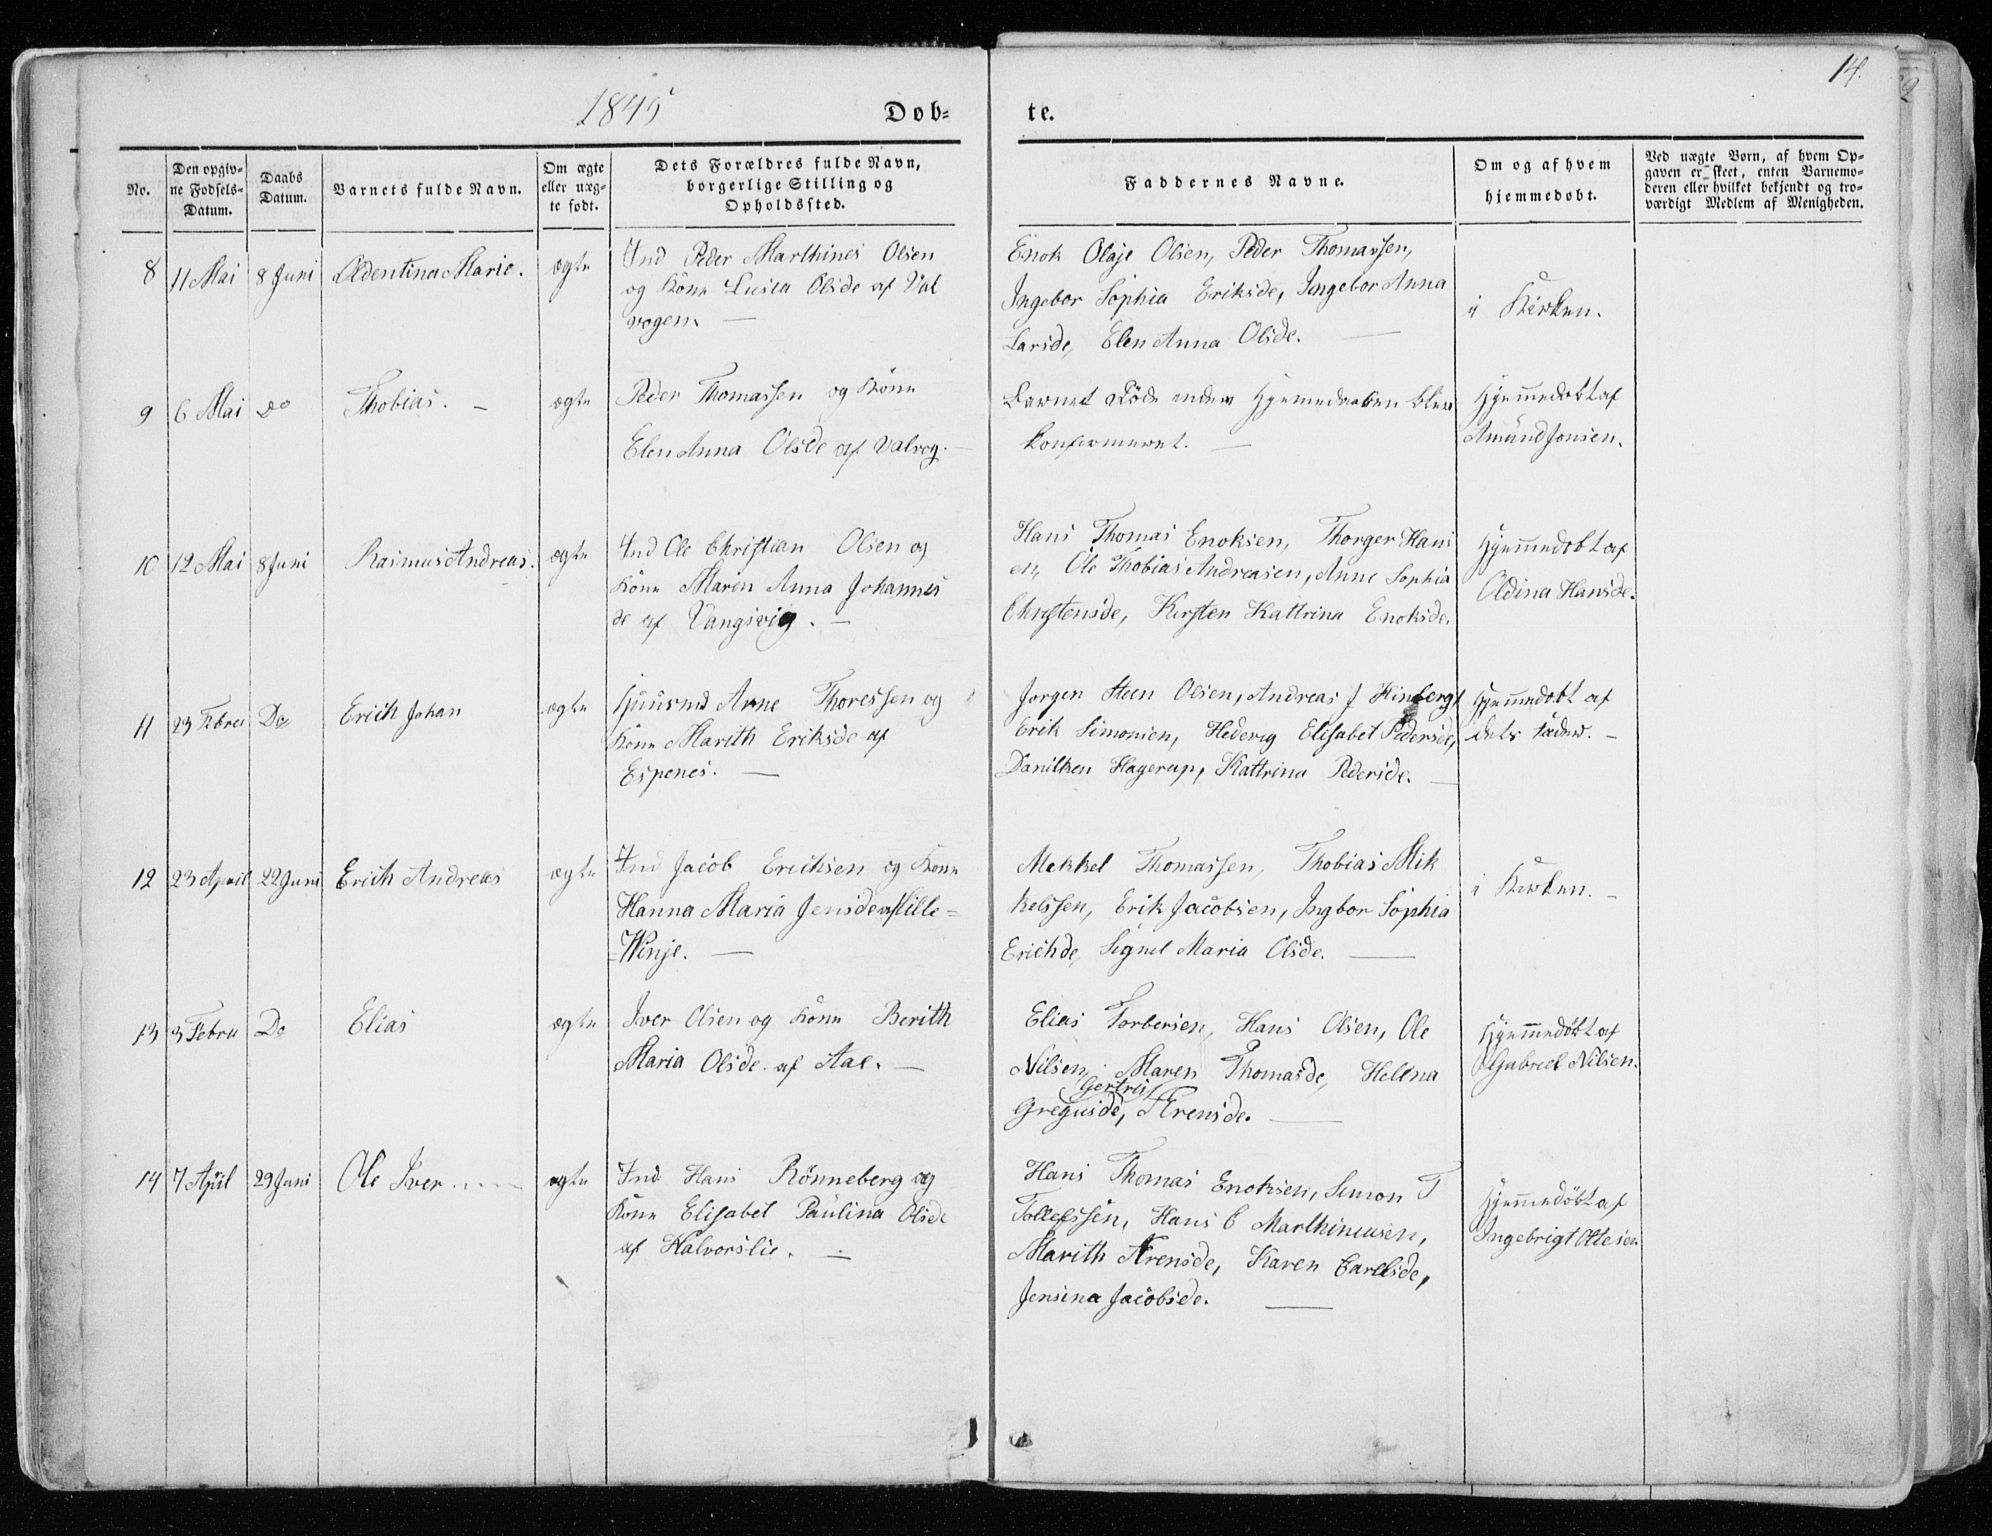 14.
1845
Dob= te.
No.
Den opgiv-
ne Fodsels-
Datum.
Daabs
Datum.
Barnets fulde Navn.
Om ægte
eller uæg-
te fodt.
Dets Forældres fulde Navn,
borgerlige Stilling og
Opholdssted.
Faddernes Navne.
Om og af hvem
hjemmedobt.
Ved uægte Born, af hvem Op-
gaven er skeet, enten Barnemo-
deren eller hvilket bekjendt og tro-
værdigt Medlem af Menigheden.
8 11 Mai 8 Juni Oldentina Marie. ægte
Ind Peder Marthines Olsen
og Kone Lusia Olsde af Val
vogen. —
Enok Olaje Olsen, Peder Thomassen,
Ingebor Sophia Eriksde, Ingebor Anna
Larsde, Elen Anna Olsde. —
i Kirken.
9 6 Mai Do Thobias. — ægte
Peder Thomassen og Kone
Elen Anna Olsde af Valvog. —
Barnet Döde enden Hjemedaaben blev
konfirmeret. —
Hjemmedobt af
Amund Jonsen.
10 12 Mai 8 Juni Rasmus Andreas. ægte
Ind Ole Christian Olsen og
Kone Maren Anna Johannes
de af Vangsvig. —
Hans Thomas Enoksen, Thorger Hans
en, Ole Thobias Andreasen, Anne Sophia
Christensde, Kirsten Kattrina Enoksde.
Hjemmedobt af
Oldina Hansde.
11 23 Febru Do Erich Johan ægte
Huusmd Arne Thoressen og
Kone Marith Eriksde af
Espenes. —
Jorgen Steen Olsen, Andreas J Kinberg
Erik Simonsen, Hedevig Elisabet Pedersde,
Danilken Hagerup, Kattrina Pedersde. —
Hjemmedobt af
dets fader. —
12 23 April 22 Juni Erich Andreas ægte
Ind Jacob Ericksen og Kone
Hanna Maria Jensde af Lille=
=Winje. —
Mekkel Thomassen, Thobias Mik
kelssen, Erik Jacobsen, Ingbor Sophia
Erichde, Signel Maria Olsde. —
i Kirken. —
13 3 Febru Do Elias ægte
Iver Olsen og Kone Berith
Maria Olsde af Aae. —
Elias Torbersen, Hans Olsen, Ole
Nilsen, Maren Thomasde, Helena
Gertrus
Gregusde, Arensde. —
Hjemmedöbt af
Gabriel Nilsen.
14 7 April 29 Juni Ole Iver ægte
Ind Hans Rönneberg og
Kone Elisabet Paulina Olsde
af Halvorslie. —
Hans Thomas Enoksen, Simon T
Tollefssen, Hans C Marthinusen,
Marith Arensde, Karen Carelsde,
Jensina Jacobsde. —
Hjemmedöbt af
Ingebrigt Ottesen